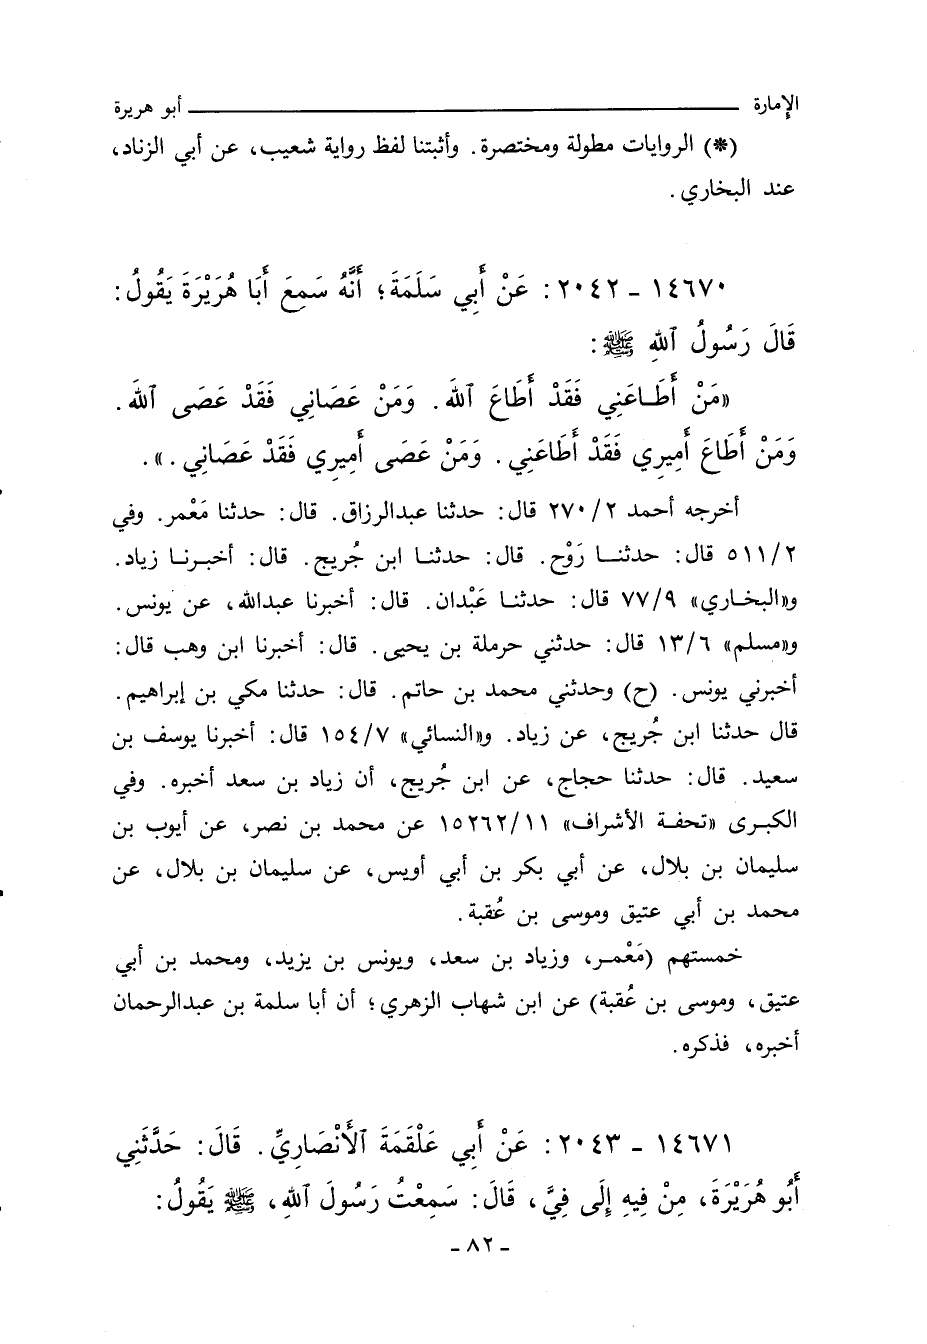 الإمارة ــــــــــــــــــــ أبو هريرة
(*) الروايات مطولة ومختصرة. وأثبتنا لفظ رواية شعيب، عن أبي الزناد،
عند البخاري.
١٤٦٧٠ - ٢٠٤٢: عَنْ أَبِي سَلَمَةَ؛ أَنَّهُ سَمِعَ أَبَا هُرَيْرَةَ يَقُولُ:
قَالَ رَسُولُ ٱللهِ ﷺ:
«مَنْ أَطَاعَنِي فَقَدْ أَطَاعَ ٱللهَ. وَمَنْ عَصَانِي فَقَدْ عَصَى ٱللهَ.
وَمَنْ أَطَاعَ أَمِيرِي فَقَدْ أَطَاعَنِي. وَمَنْ عَصَى أَمِيرِي فَقَدْ عَصَانِي.».
أخرجه أحمد ٢/٢٧٠ قال: حدثنا عبدالرزاق. قال: حدثنا مَعْمر. وفي
٢/٥١١ قال: حدثنا رَوْح. قال: حدثنا ابن جُريج. قال: أخبرنا زياد.
و«البخاري» ٩/٧٧ قال: حدثنا عَبْدان. قال: أخبرنا عبدالله، عن يونس.
و«مسلم» ٦/١٣ قال: حدثني حرملة بن يحيى. قال: أخبرنا ابن وهب قال:
أخبرني يونس. (ح) وحدثني محمد بن حاتم. قال: حدثنا مكي بن إبراهيم.
قال حدثنا ابن جُريج، عن زياد. و«النسائي» ٧/١٥٤ قال: أخبرنا يوسف بن
سعيد. قال: حدثنا حجاج، عن ابن جُريج، أن زياد بن سعد أخبره. وفي
الكبرى «تحفة الأشراف» ١١/١٥٢٦٢ عن محمد بن نصر، عن أيوب بن
سليمان بن بلال، عن أبي بكر بن أبي أويس، عن سليمان بن بلال، عن
محمد بن أبي عتيق وموسى بن عُقبة.
خمستهم (مَعْمر، وزياد بن سعد، ويونس بن يزيد، ومحمد بن أبي
عتيق، وموسى بن عُقبة) عن ابن شهاب الزهري؛ أن أبا سلمة بن عبدالرحمان
أخبره، فذكره.
١٤٦٧١ - ٢٠٤٣: عَنْ أَبِي عَلْقَمَةَ ٱلْأَنْصَارِيِّ. قَالَ: حَدَّثَنِي
أَبُو هُرَيْرَةَ، مِنْ فِيهِ إِلَى فِيَّ، قَالَ: سَمِعْتُ رَسُولَ ٱللهِ، ﷺ يَقُولُ:
- ٨٢ -